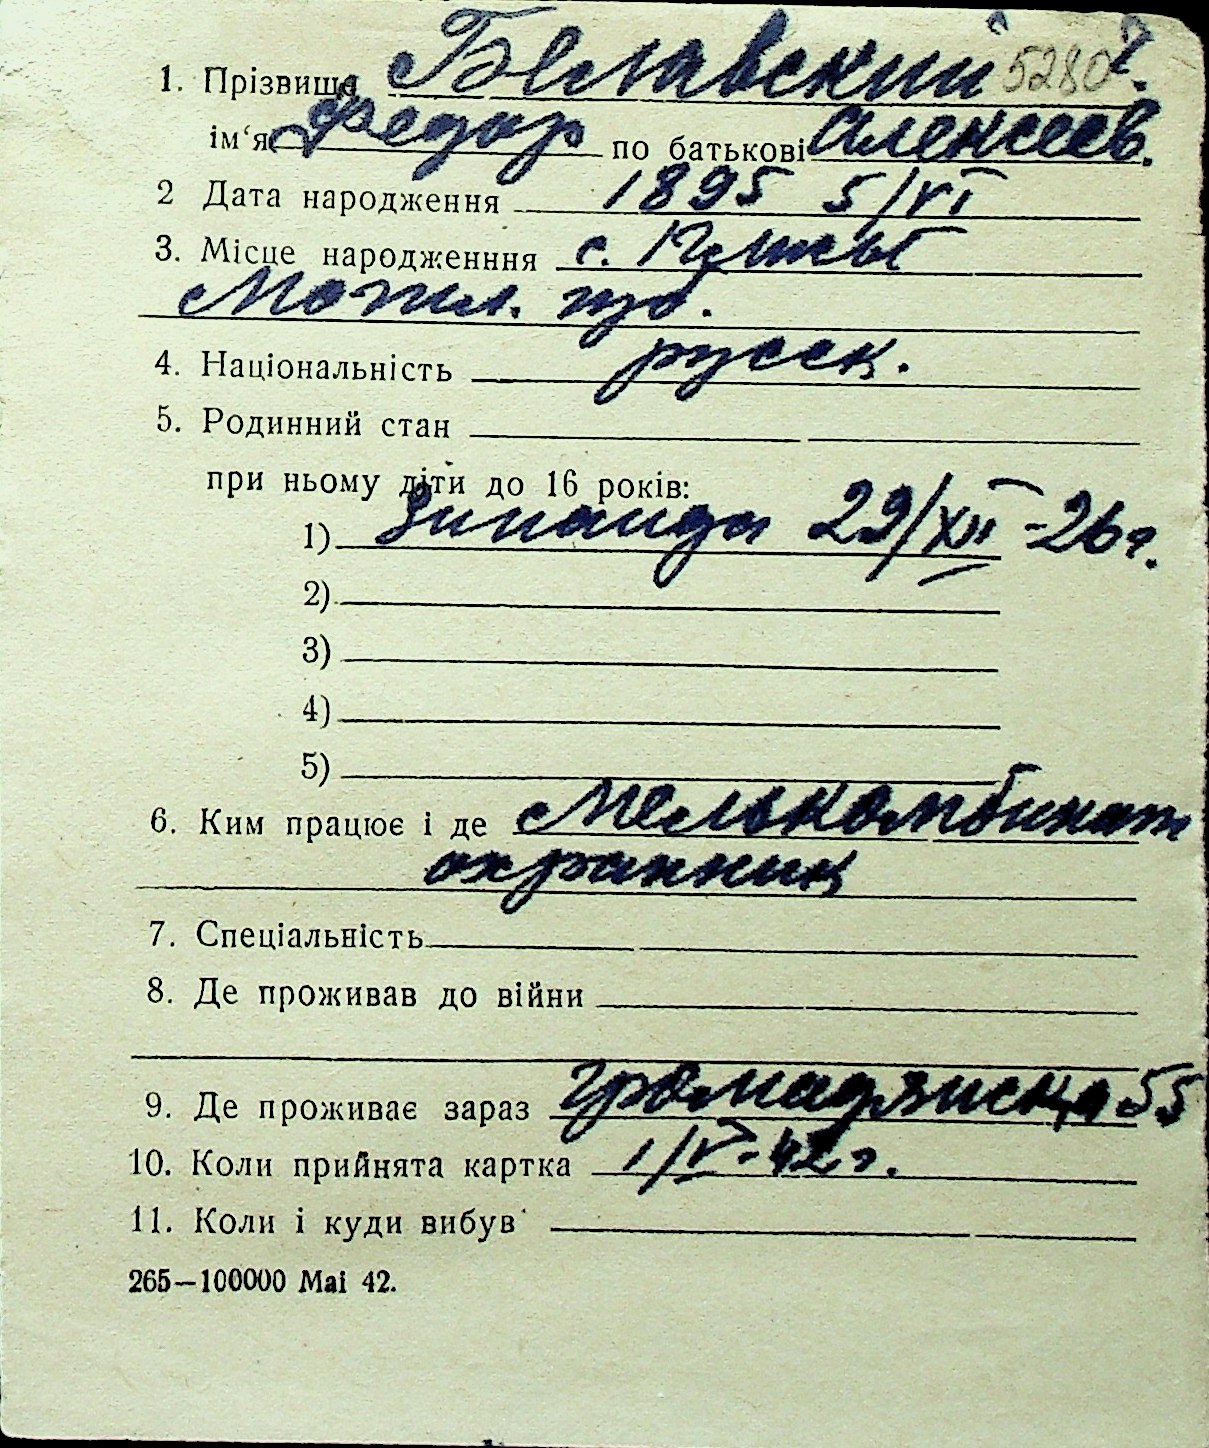 1. Прізвище Белавский 5280 ч.
ім‘я Федор по батькові Алексеев.
2 Дата народження 1895 5/VI
3. Місце народженння с.
Могил. губ.
4. Національність русск.
5. Родинний стан
при ньому діти до 16 років:
1) Зинаида 29/XII-26 г.
2)
3)
4)
5)
6. Ким працює і де Мелькомбинат
охранник
7. Спеціальність
8. Де проживав до війни
9. Де проживає зараз Громадянска 55
10. Коли прийнята картка 1/V-42 г.
11. Коли і куди вибув
265—100000 Mai 42.